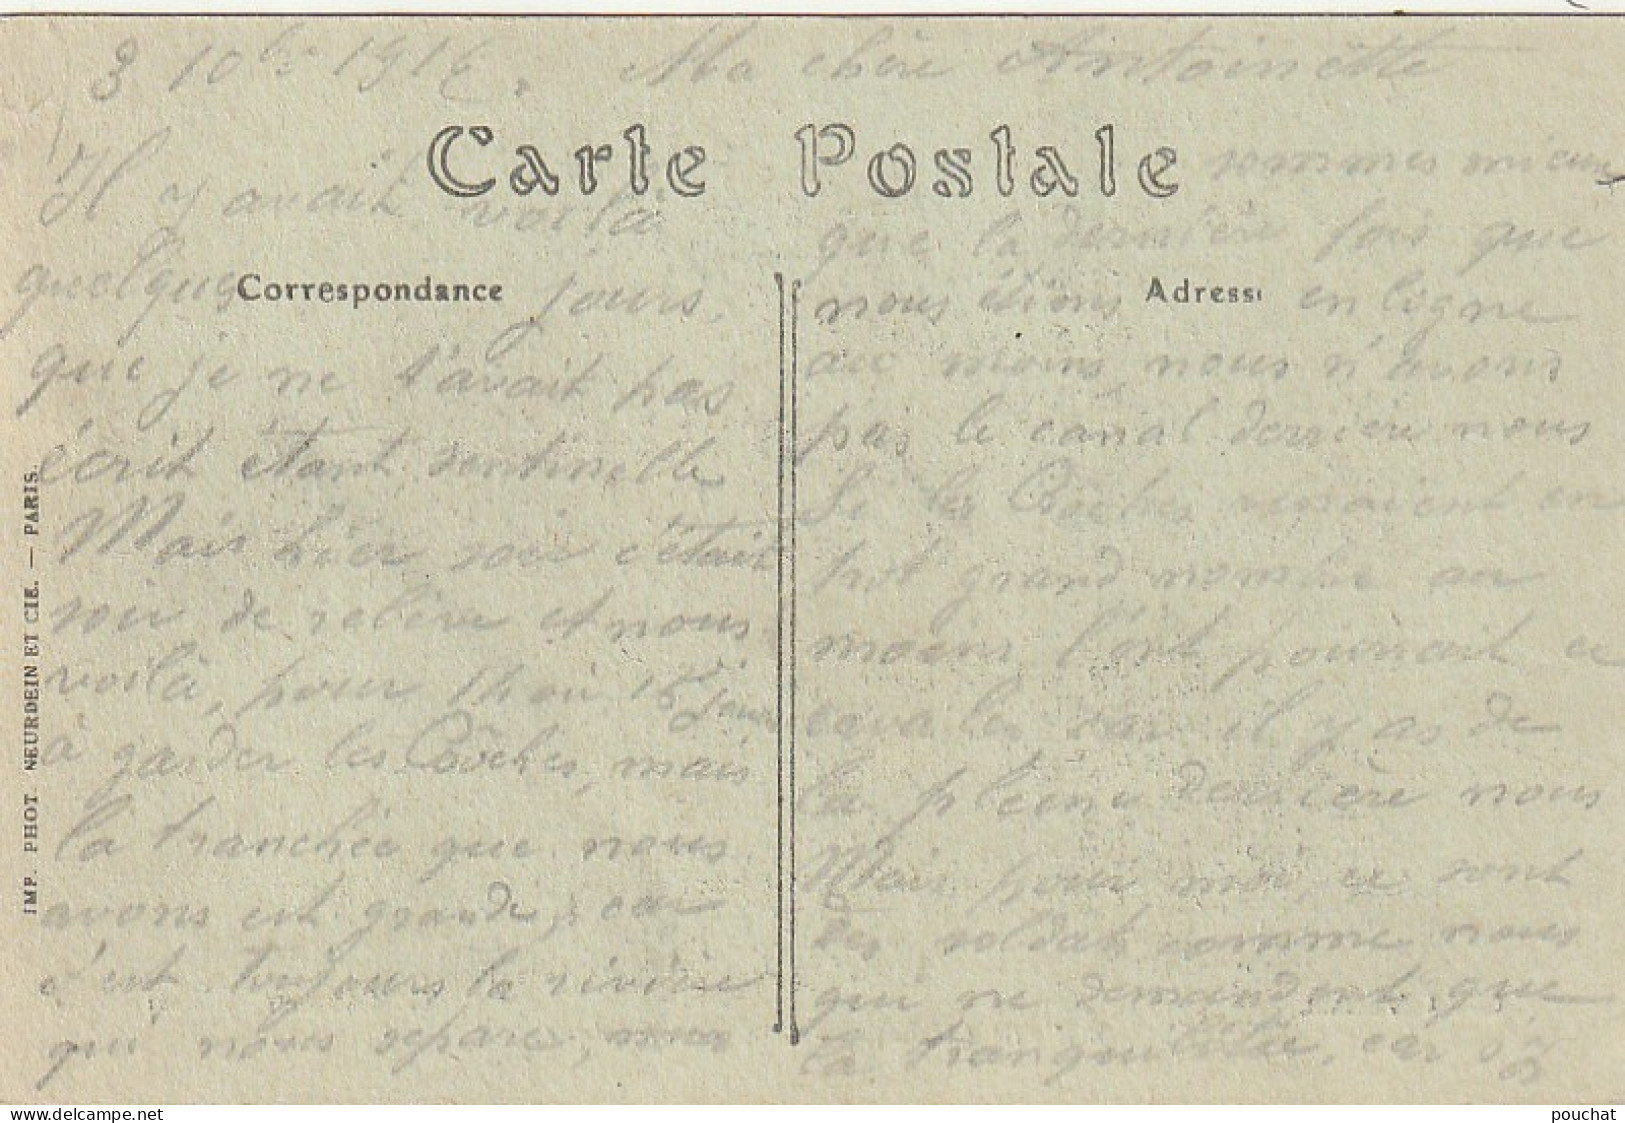 3 10bre 191 Ma chère Antoinette
Carte Postale
Il y avait voilà
quelques jours,
que je ne t'avait pas
écrit étant sentinelle
Mais hier soir c'était
soir de relève et nous
voilà, pour jours
à garder les Boches, mais
la tranchée que nous
avons est grande, car
c'est toujours la rivière
qui nous sépare, nous
Correspondance
Adresse
sommes mieux
que la dernière fois que
nous étions en ligne
au moins nous n'avons
pas le canal derrière nous
Si les Boches venaient en
grand nombre au
moins l'ont pourrait
car il y as de
la pleine derrière nous
Mais pour moi, ce sont
des soldats comme nous
qui ne demandent que
la tranquilitée, car
IMP. PHOT NEURDEIN ET CIE. — PARIS.
delcampe.net
pouchat